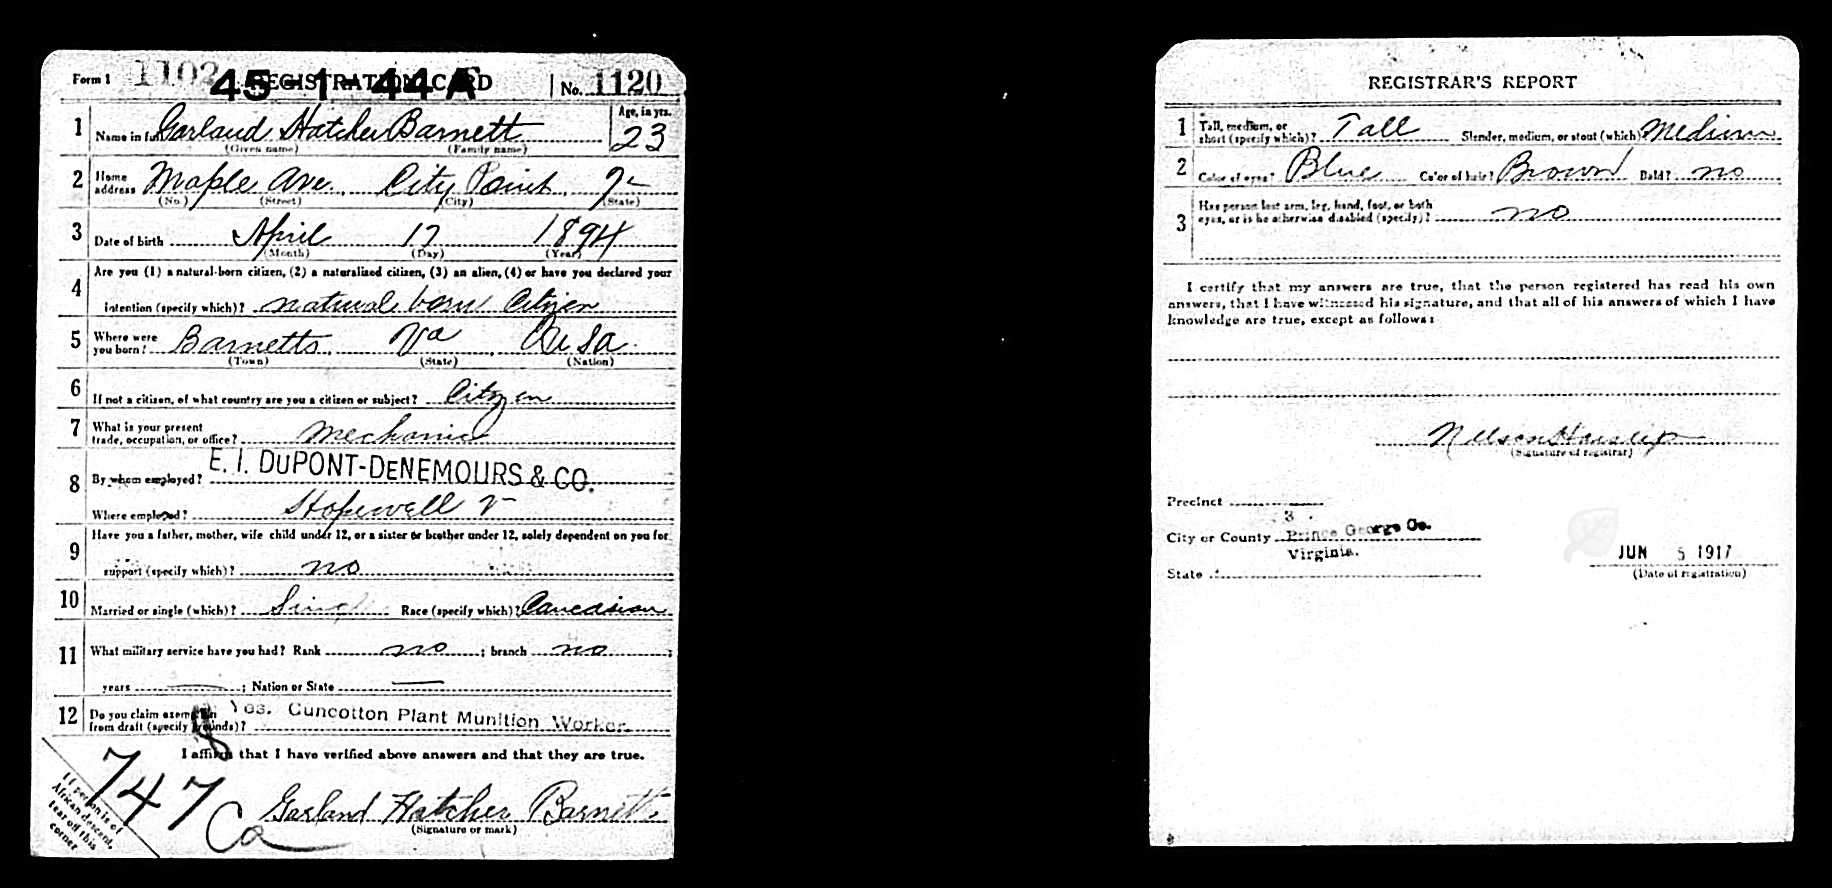 Form 1 1102 REGISTRATION CARD No. 1120
45-1-44 A
1 Name in full Garland Hatcher Barnett Age, in yrs. 23
(Given name) (Family name)
2 Home address Maple Ave. City Point Va
(No.) (Street) (City) (State)
3 Date of birth April 17 1894
(Month) (Day) (Year)
4 Are you (1) a natural-born citizen, (2) a naturalized citizen, (3) an alien, (4) or have you declared your
intention (specify which)? natural born Citizen
5 Where were you born? Barnetts Va U S a
(Town) (State) (Nation)
6 If not a citizen, of what country are you a citizen or subject? Citizen
7 What is your present trade, occupation, or office? mechanic
8 By whom employed? E. I. DUPONT-DENEMOURS & CO.
Where employed? Hopewell V
9 Have you a father, mother, wife child under 12, or a sister or brother under 12, solely dependent on you for
support (specify which)? no
10 Married or single (which)? Single Race (specify which)? Caucasian
11 What military service have you had? Rank no ; branch no ;
years ; Nation or State
12 Do you claim exemption from draft (specify grounds)? Yes. Guncotton Plant Munition Worker.
I affirm that I have verified above answers and that they are true.
747 Ca Garland Hatcher Barnett
(Signature or mark)
If person is of
African descent,
tear off this
corner
REGISTRAR'S REPORT
1 Tall, medium, or short (specify which)? Tall Slender, medium, or stout (which) Medium
2 Color of eyes? Blue Color of hair? Brown Bald? no
3 Has person lost arm, leg, hand, foot, or both
eyes, or is he otherwise disabled (specify)? no
I certify that my answers are true, that the person registered has read his own
answers, that I have witnessed his signature, and that all of his answers of which I have
knowledge are true, except as follows:
Nelson Haislip
(Signature of registrar)
Precinct
3
City or County Prince George Co.
Virginia.
State
JUN 5 1917
(Date of registration)